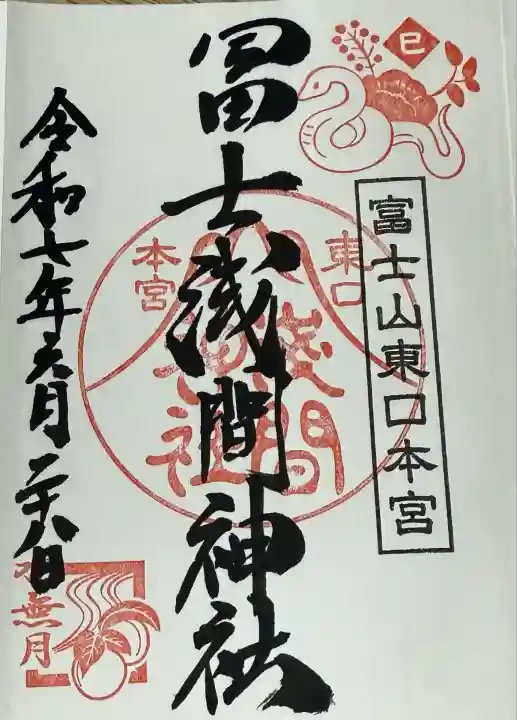 巳
富士山東口本宮
東口
本宮
浅間
神社
冨士浅間神社
令和七年六月二十八日
水無月